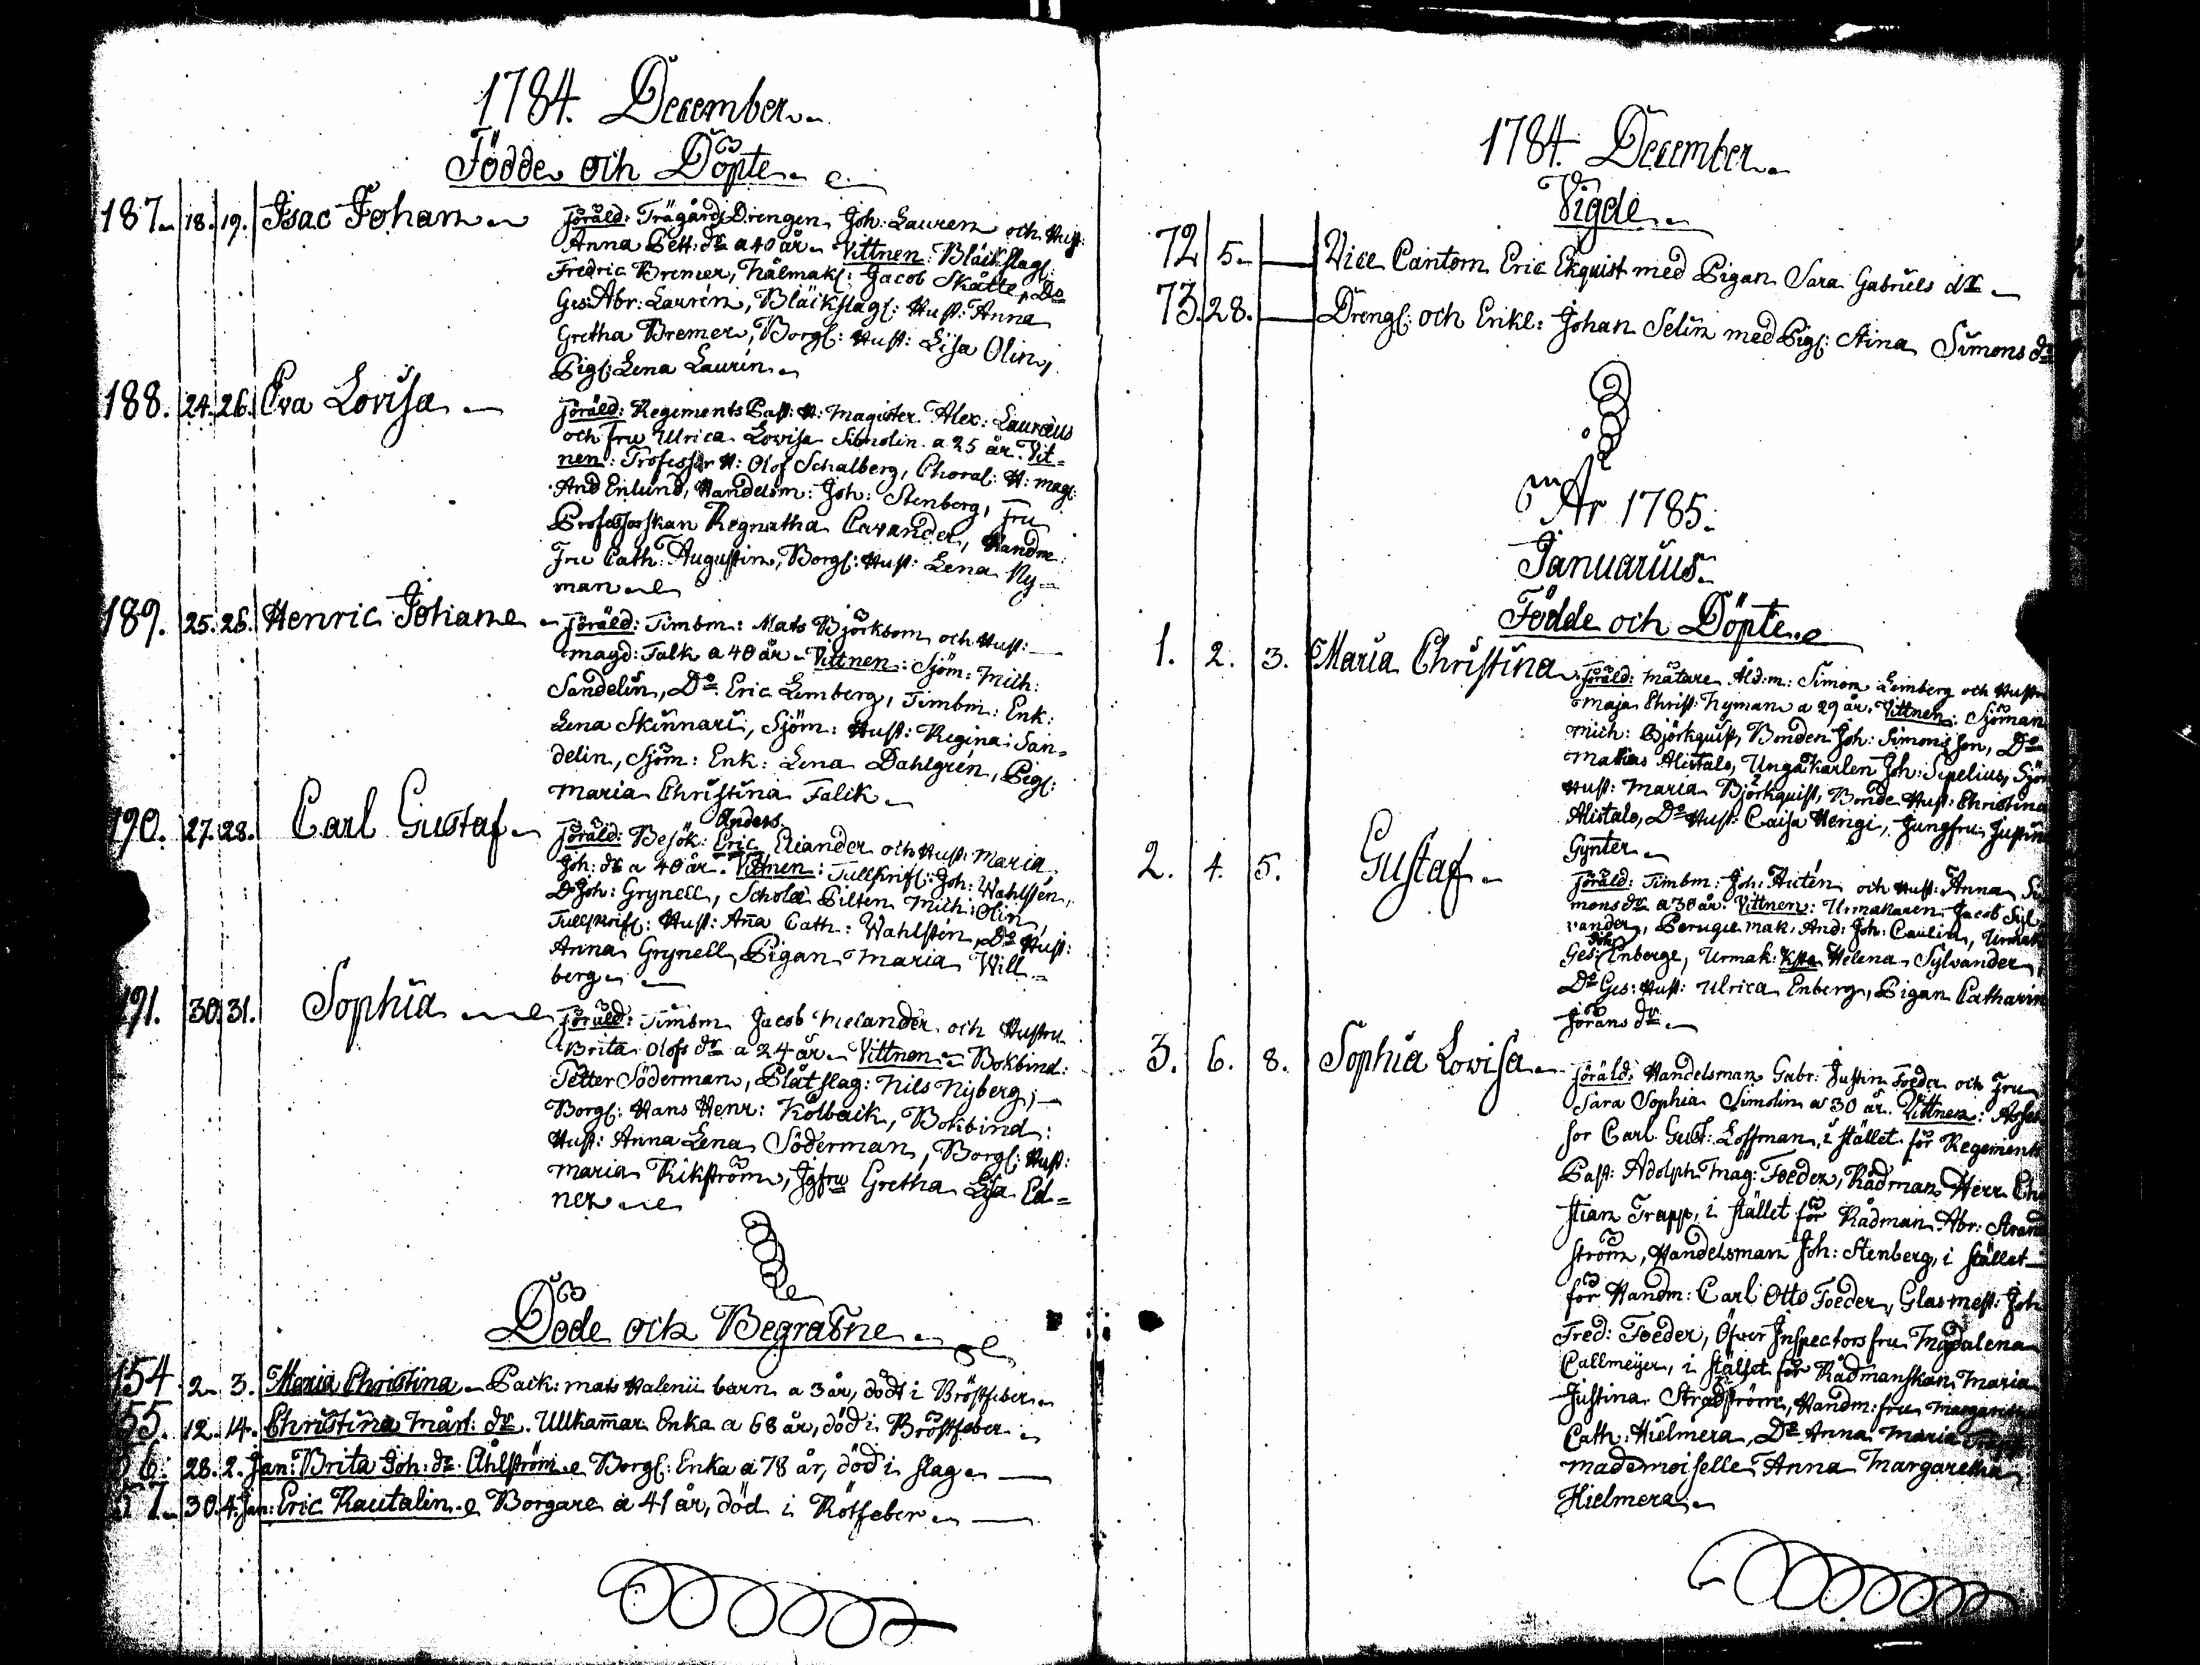 1784. December.
Födde och Döpte.
187. 18. 19. Isac Johan
Föräld: TrägårdsDrengen Joh: Lauren och Hust:
Anna Pett: dr a 40 år. Vittnen: Bläckslag:
Fredric Bremer, Hålmak: Jacob Skatte, Do
Ges: Abr: Laurén, Bläckslag: Hust: Anna
Gretha Bremer, Borg: Hust: Lisa Olin,
Pig: Lena Laurin.
188. 24. 26. Eva Lovisa.
Föräld: Regements Past: H: Magister Alex: Lauræus
och fru Ulrica Lovisa Simolin a 25 år. Vit=
nen: Professor H: Olof Schalberg, Choral: H: mag:
And Enlund, Handelsm: Joh: Stenberg, Fru
Professorskan Regnatha Cavander, Handm:
Fru Cath: Augustin, Borg: Hust: Lena Ny=
man
189. 25. 26. Henric Johan
Föräld: Timbm: Mats Björkbom och Hust:
magd: Falk a 40 år. Vittnen: Sjöm: Mich:
Sandelin, Do Eric Lemberg, Timbm: Enk:
Lena Skinnari, Sjöm: Hust: Regina San=
delin, Sjöm: Enk: Lena Dahlgrén, Pig:
Maria Christina Falck.
190. 27. 28. Carl Gustaf
Anders
Föräld: Besök: Eric Eliander och Hust: Maria
Joh: dr a 40 år. Vittnen: Tullskrif: Joh: Wahlstén,
Do Joh: Grynell, Scholæ Pilten Mich: Olin,
Tullskrif: Hust: Aña Cath: Wahlstén, Do Hust:
Anna Grynell, Pigan Maria Will=
berg.
191. 30. 31. Sophia
Föräld: Timbm Jacob Melander och Hustru
Brita Olofs dr a 24 år. Vittnen: Bokbind:
Petter Söderman, Plåtslag: Nils Nyberg,
Borg: Hans Henr: Kolbäck, Bokbind:
Hust: Anna Lena Söderman, Borg: Hust:
Maria Rikström, Jgfru Gretha Lisa Ed=
ner
Döde och Begrafne
154 2. 3. Maria Christina Pack: mats Halenii barn a 3 år, död i Bröstfeber
55. 12. 14. Christina Mårt: dr. Ullkam̃ar Enka a 68 år, död i Bröstfeber
56. 28. 2. Jan: Brita Joh: dr. Åhlström Borg: Enka a 78 år, död i slag
57. 30. 4. Jan: Eric Rautalin Borgare a 41 år, död i Rötfeber
1784. December.
Vigde.
72 5. Vice Cantorn Eric Ekquist med Pigan Sara Gabriels dr
73. 28. Dreng: och Enkl: Johan Selin med Pig: Stina Simons dr
År 1785.
Januarius.
Födde och Döpte.
1. 2. 3. Maria Christina
Föräld: Mätare Åld:m: Simon Lemberg och Hustru
Maja Christ: Nyman a 29 år. Vittnen: Sjöman
Mich: Björkquist, Bonden Joh: Simonsson, Do
Matias Alistalo, Ungakarlen Joh: Sipelius, Sjöm
Hust: Maria Björkquist, Bonde Hust: Christina
Alistalo, Do Hust: Caisa Hengi, Jungfru Justina
Gynter
2. 4. 5. Gustaf
Föräld: Timbm: Joh: Autén och Hust: Anna Si
mons dr a 30 år. Vittnen: Urmakaren Jacob Syl
vander, Peruque mak. And: Joh: Caulin,
Ges: Enberg, Urmak: Helena Sylvander,
Do Ges: Hust: Ulrica Enberg, Pigan Catharin
Jörans dr.
3. 6. 8. Sophia Lovisa
Föräld: Handelsman Gabr: Justin Foeder och Fru
Sara Sophia Simolin a 30 år. Vittnen: Asses
sor Carl Gust: Loffman, i stället för Regiments
Past: Adolph Mag: Foeder, Rådman Herr Chri
stian Trapp, i stället för Rådman Abr: Strand
ström, Handelsman Joh: Stenberg, i stället
för Handm: Carl Otto Foeder, Glasmest: Joh
Fred: Foeder, Öfver Inspectors fru Magdalena
Callmeyer, i stället för Rådmanskan Maria
Justina Strandström, Handm: fru Margareta
Cath: Hielmera, Do Anna Maria Trapp
mademoiselle Anna Margaretha
Hielmera